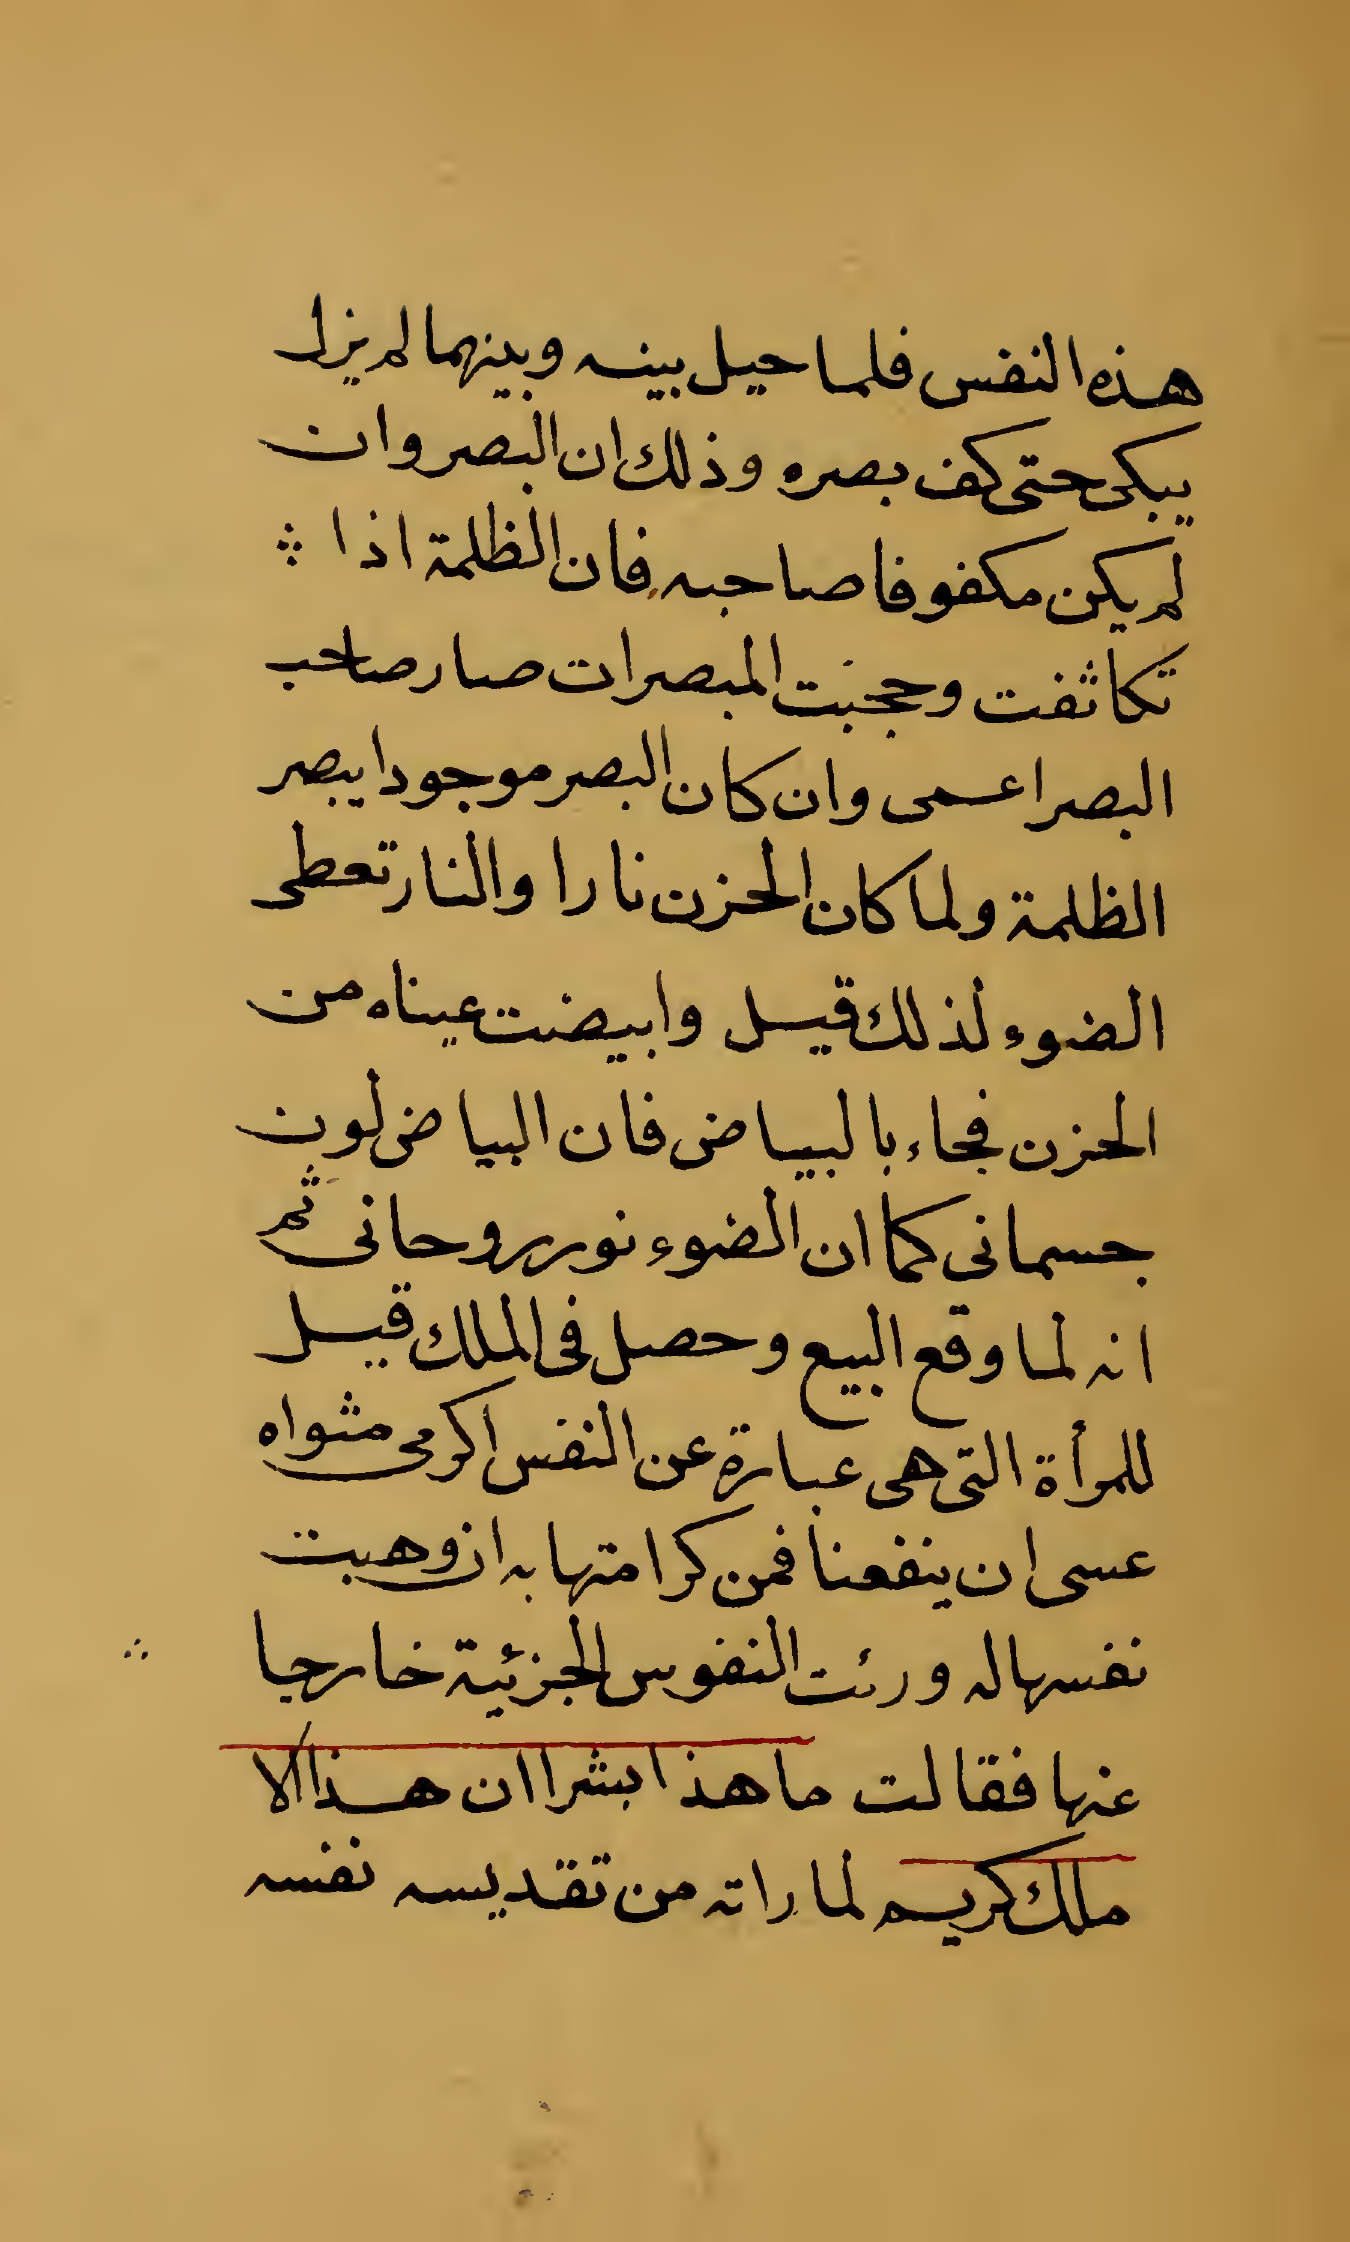 هذه النفس فلما حيل بينه وبينهما لم يزل
يبكى حتى كف بصره وذلك ان البصر وان
لم يكن مكفوفا صاحبه فان الظلمة اذا
تكاثفت وحجبت المبصرات صار صاحب
البصر اعمى وان كان البصر موجودا يبصر
الظلمة ولما كان الحزن نارا والنار تعطى
الضوء لذلك قيل وابيضت عيناه من
الحزن فجاء بالبياض فان البياض لون
جسمانى كما ان الضوء نور روحانى ثم
انه لما وقع البيع وحصل فى الملك قيل
للمرأة التى هى عبارة عن النفس اكرمى مثواه
عسى ان ينفعنا فمن كرامتها به ان وهبت
نفسها له ورئت النفوس الجزئية خارجا
عنها فقالت ما هذا بشرا ان هذا الا
ملك كريم لما راته من تقديسه نفسه